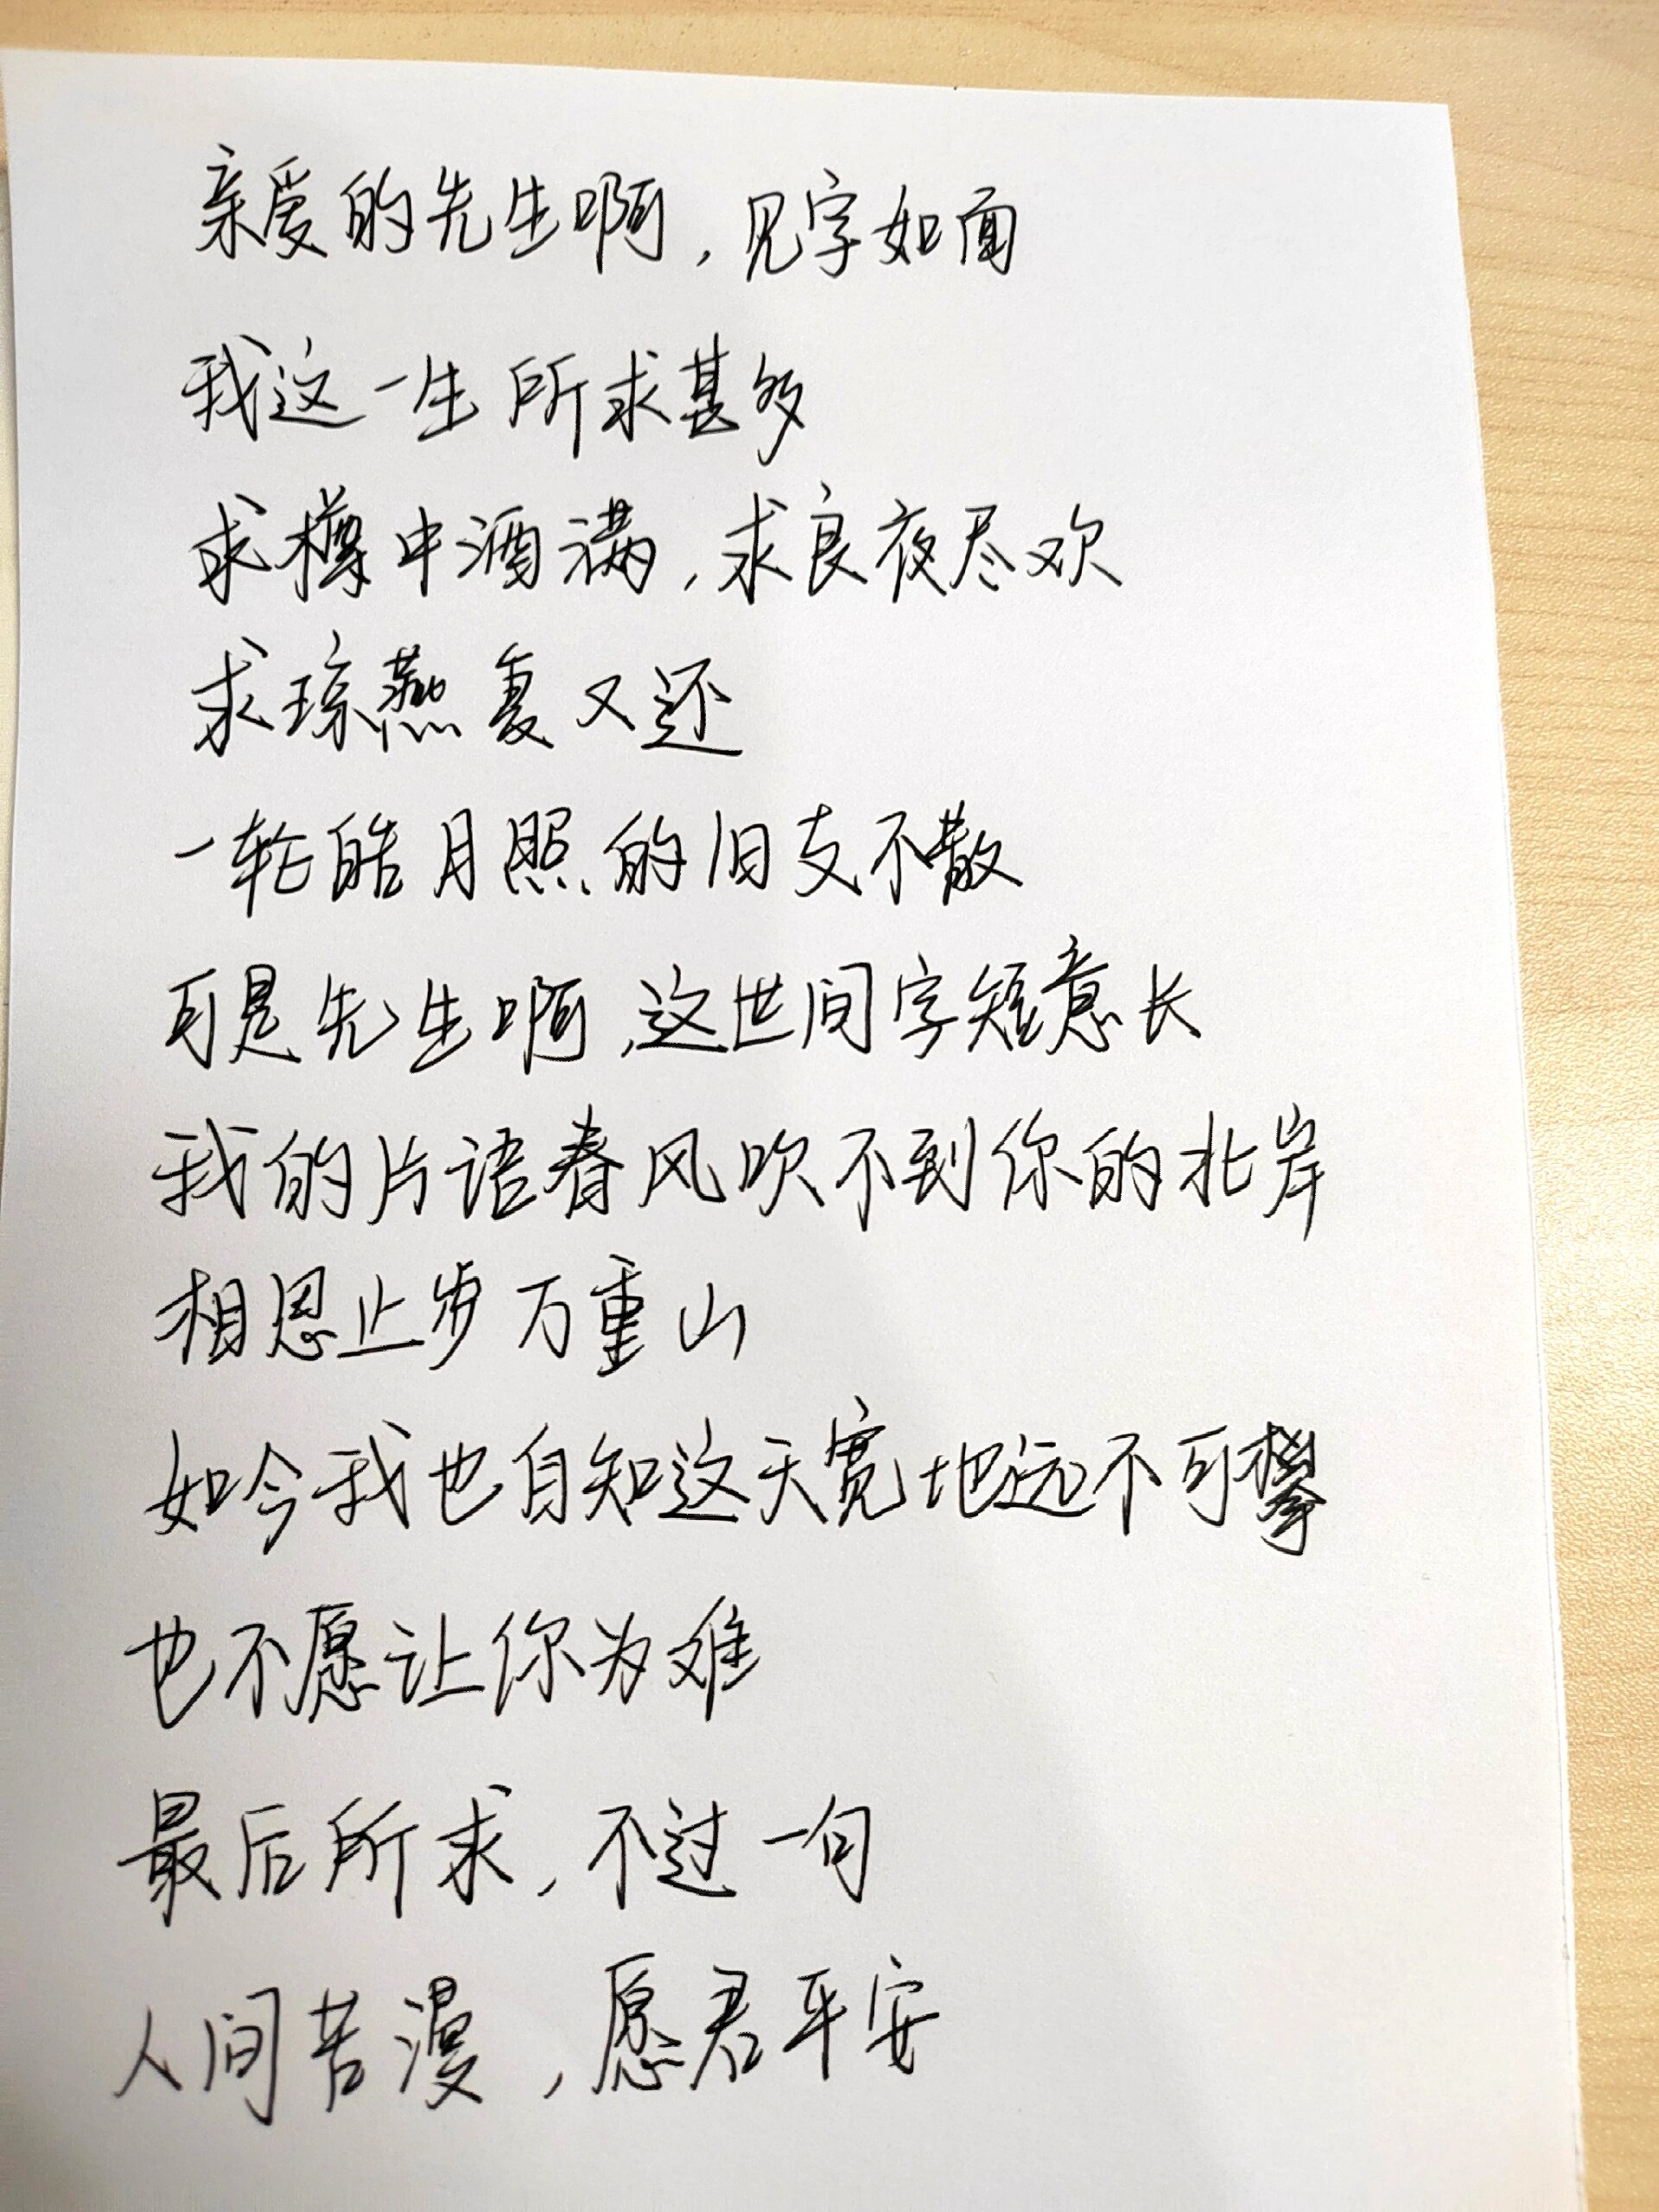 亲爱的先生啊，见字如面
我这一生所求甚多
求樽中酒满，求良夜尽欢
求琼燕复又还
一轮皓月照的旧友不散
可是先生啊，这世间字短意长
我的片语春风吹不到你的北岸
相思止步万重山
如今我也自知这天宽地远不可攀
也不愿让你为难
最后所求，不过一句
人间苦漫，愿君平安